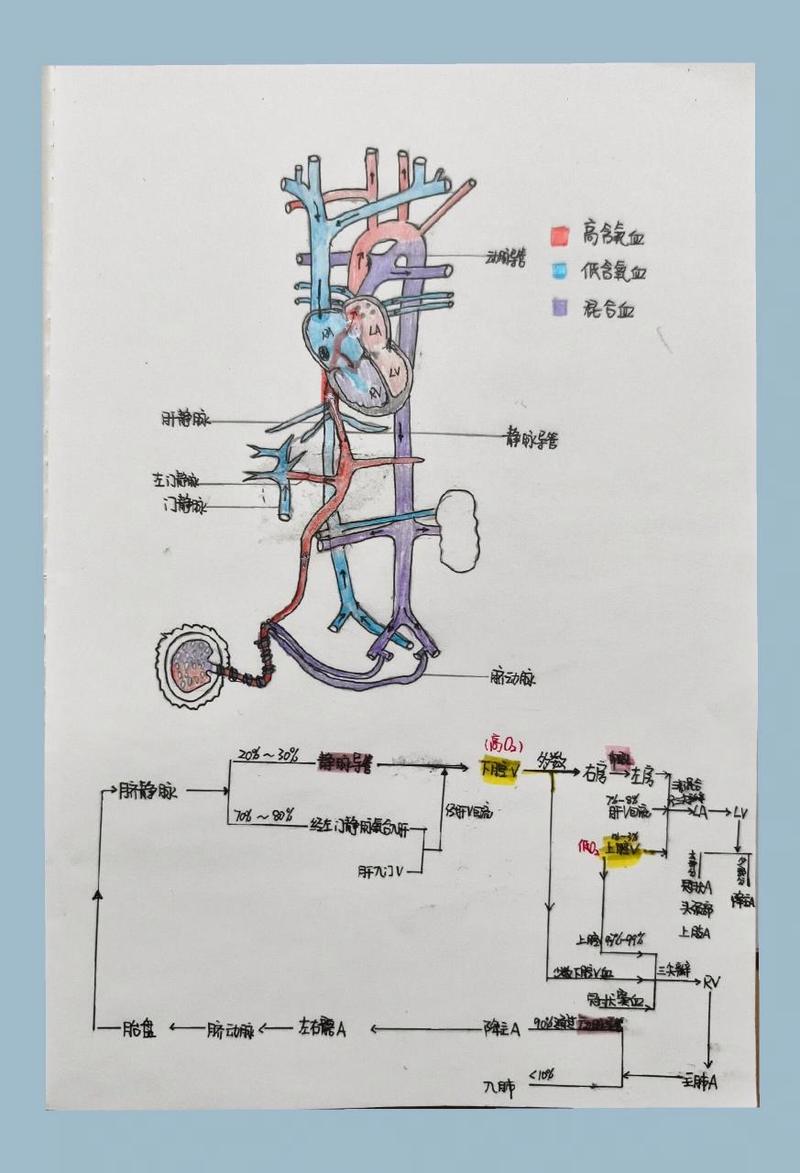 高含氧血
动脉导管
低含氧血
混合血
RA
LA
LV
RV
肝静脉
静脉导管
左门静脉
门静脉
脐动脉
(高O₂)
20%~30% 静脉导管
下腔V
多数
右房
左房
脐静脉
70%~80% 经左门静脉
经肝V回流
肝门V
7%~8%
肝V回流
LA
LV
低O₂ 上腔V
冠状A
头颈部
上肢A
降主A
上腔 97%~99%
少数下腔V血
三尖瓣
RV
冠状窦血
胎盘
脐动脉
左右髂A
降主A
90%通过
入肺
<10%
主肺A